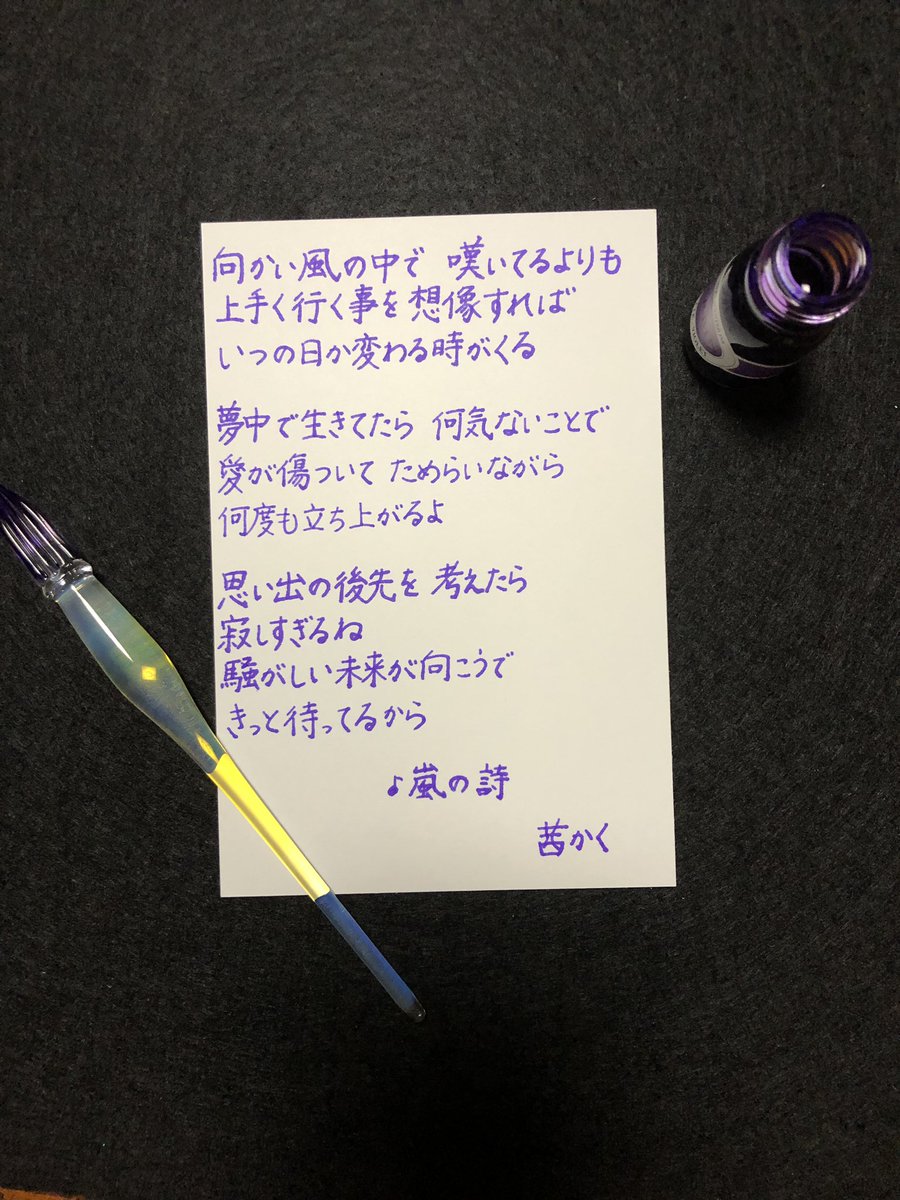 向かい風の中で 嘆いてるよりも
上手く行く事を想像すれば
いつの日か変わる時がくる
夢中で生きてたら 何気ないことで
愛が傷ついて ためらいながら
何度も立ち上がるよ
思い出の後先を 考えたら
寂しすぎるね
騒がしい未来が向こうで
きっと待ってるから
♪嵐の詩
茜かく